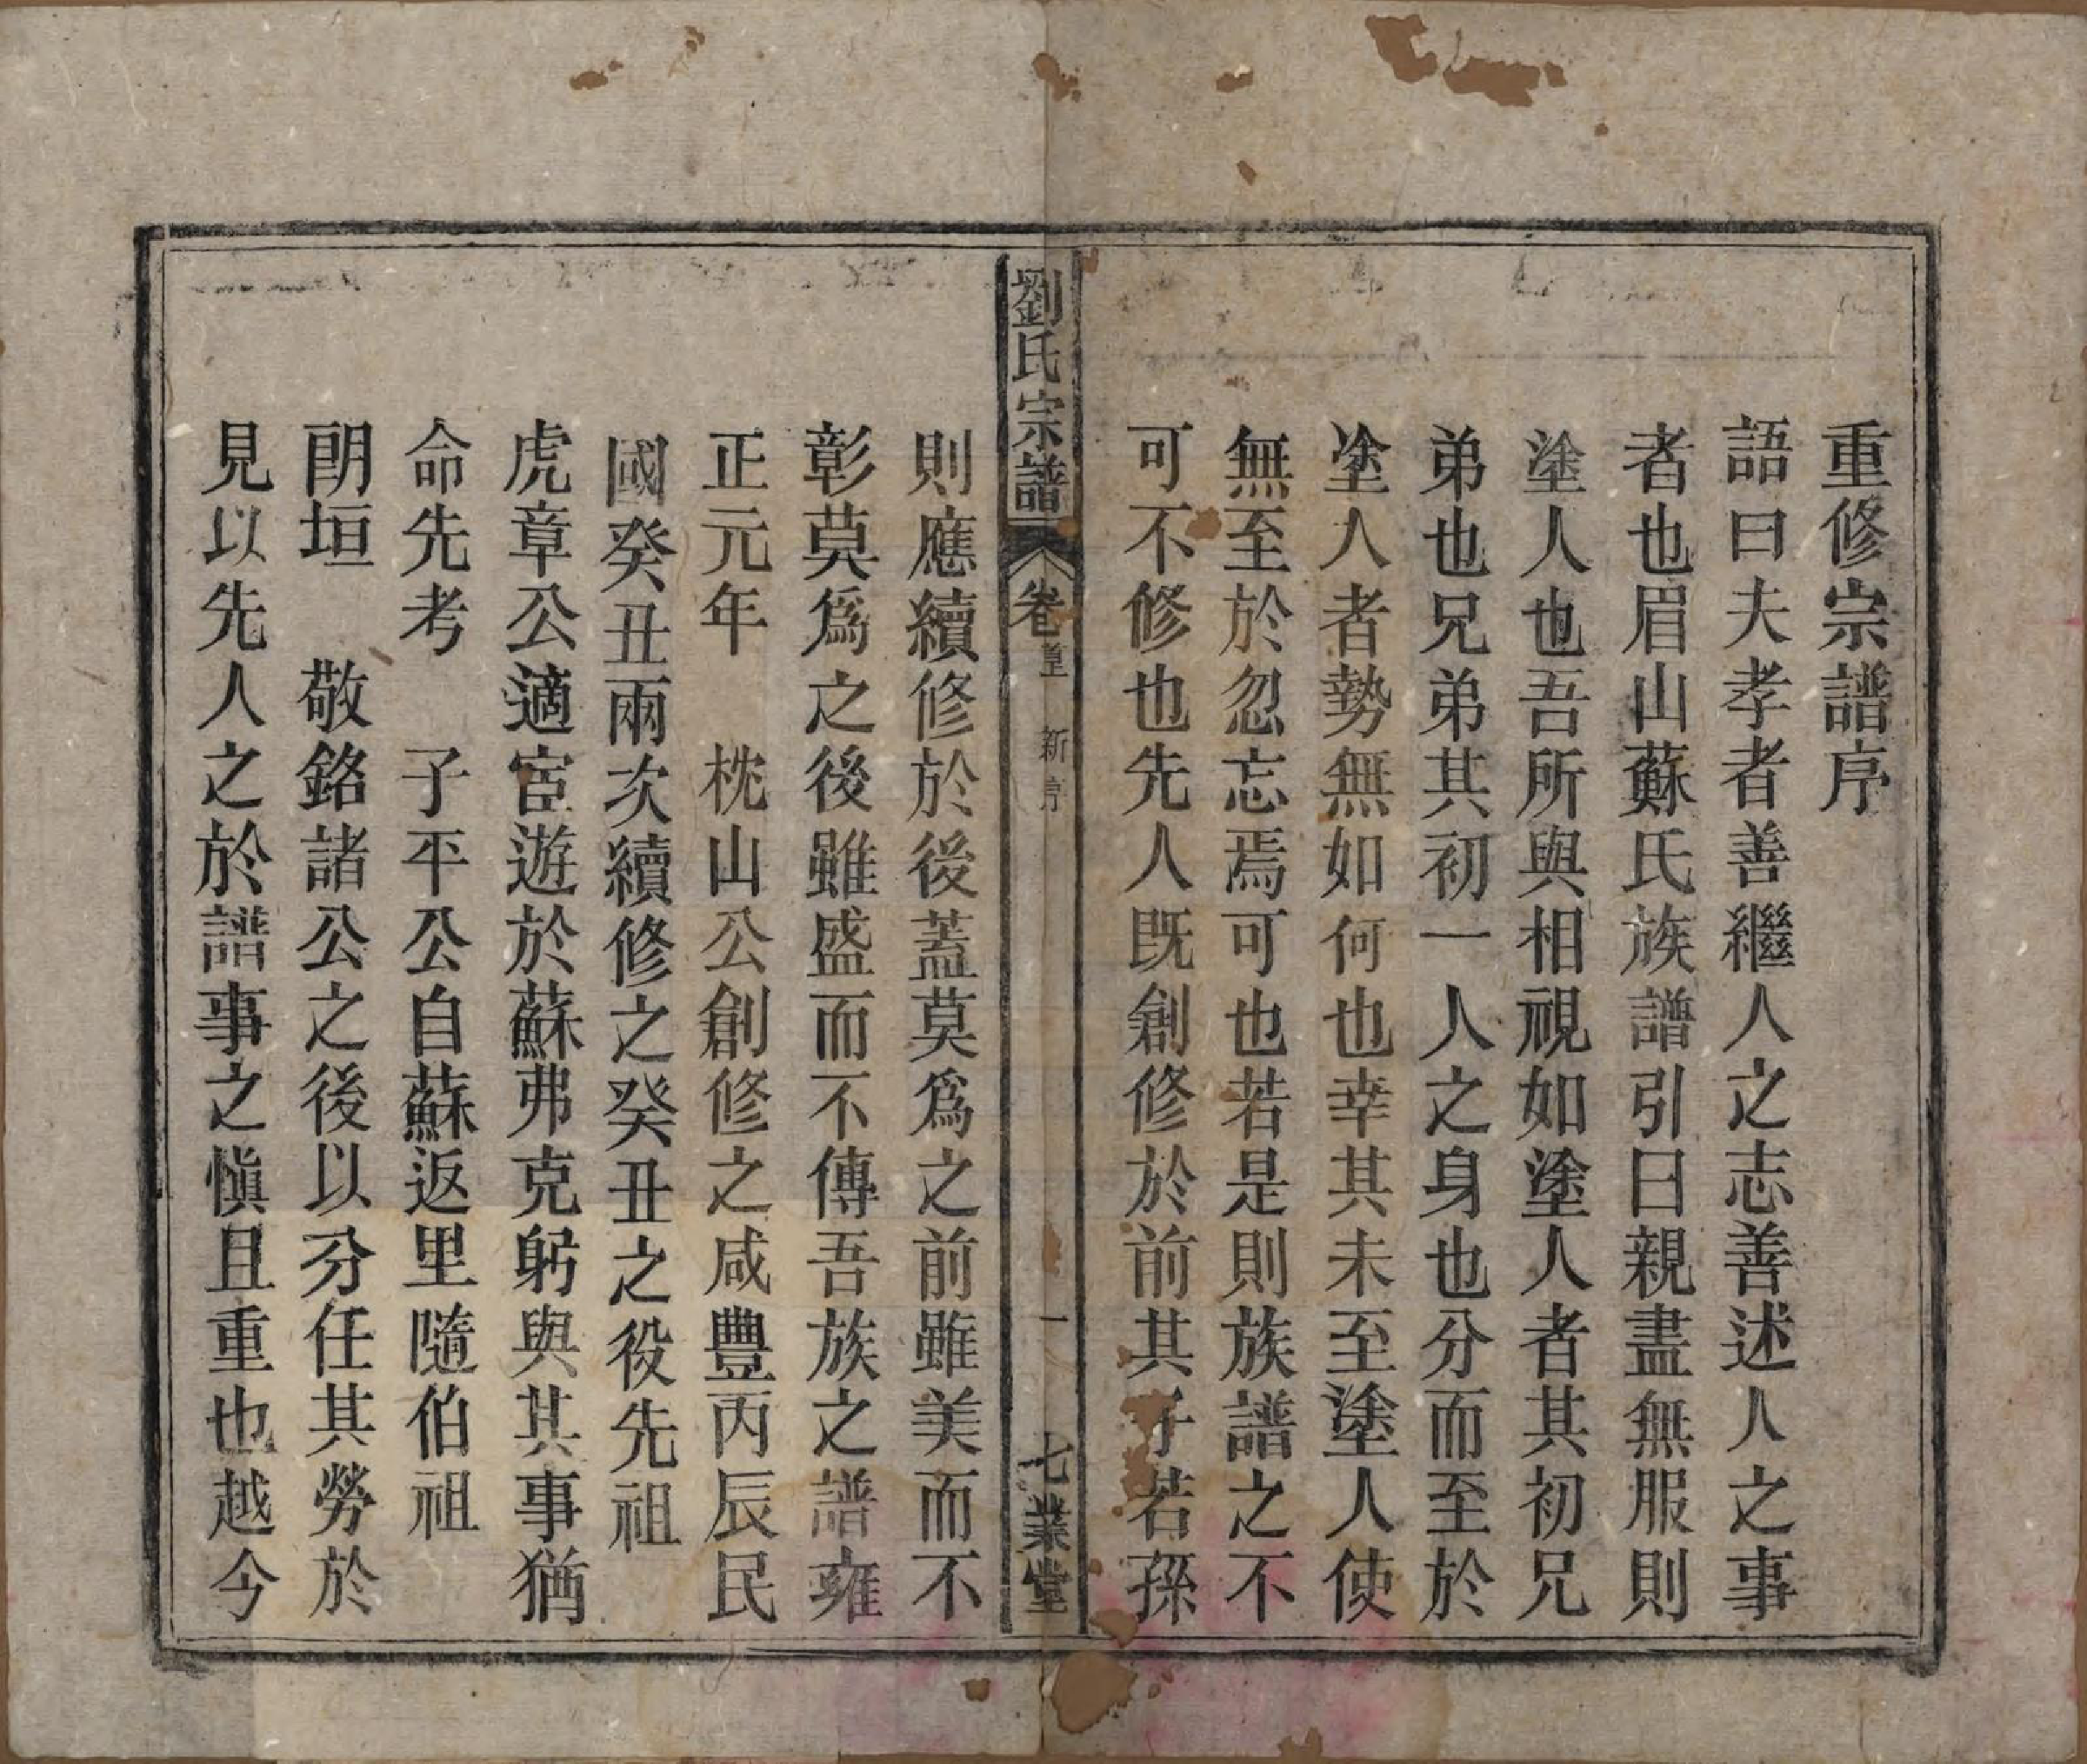 重修宗譜序
語曰夫孝者善繼人之志善述人之事
者也眉山蘇氏族譜引曰親盡無服則
塗人也吾所與相視如塗人者其初兄
弟也兄弟其初一人之身也分而至於
塗人者勢無如何也幸其未至塗人使
無至於忽忘焉可也若是則族譜之不
可不修也先人既創修於前其子若孫
劉氏宗譜 卷首 新序 一 七業堂
則應續修於後蓋莫為之前雖美而不
彰莫為之後雖盛而不傳吾族之譜雍
正元年 枕山公創修之咸豐丙辰民
國癸丑兩次續修之癸丑之役先祖
虎章公適宦遊於蘇弗克躬與其事猶
命先考 子平公自蘇返里隨伯祖
朗垣 敬銘諸公之後以分任其勞於
見以先人之於譜事之愼且重也越今